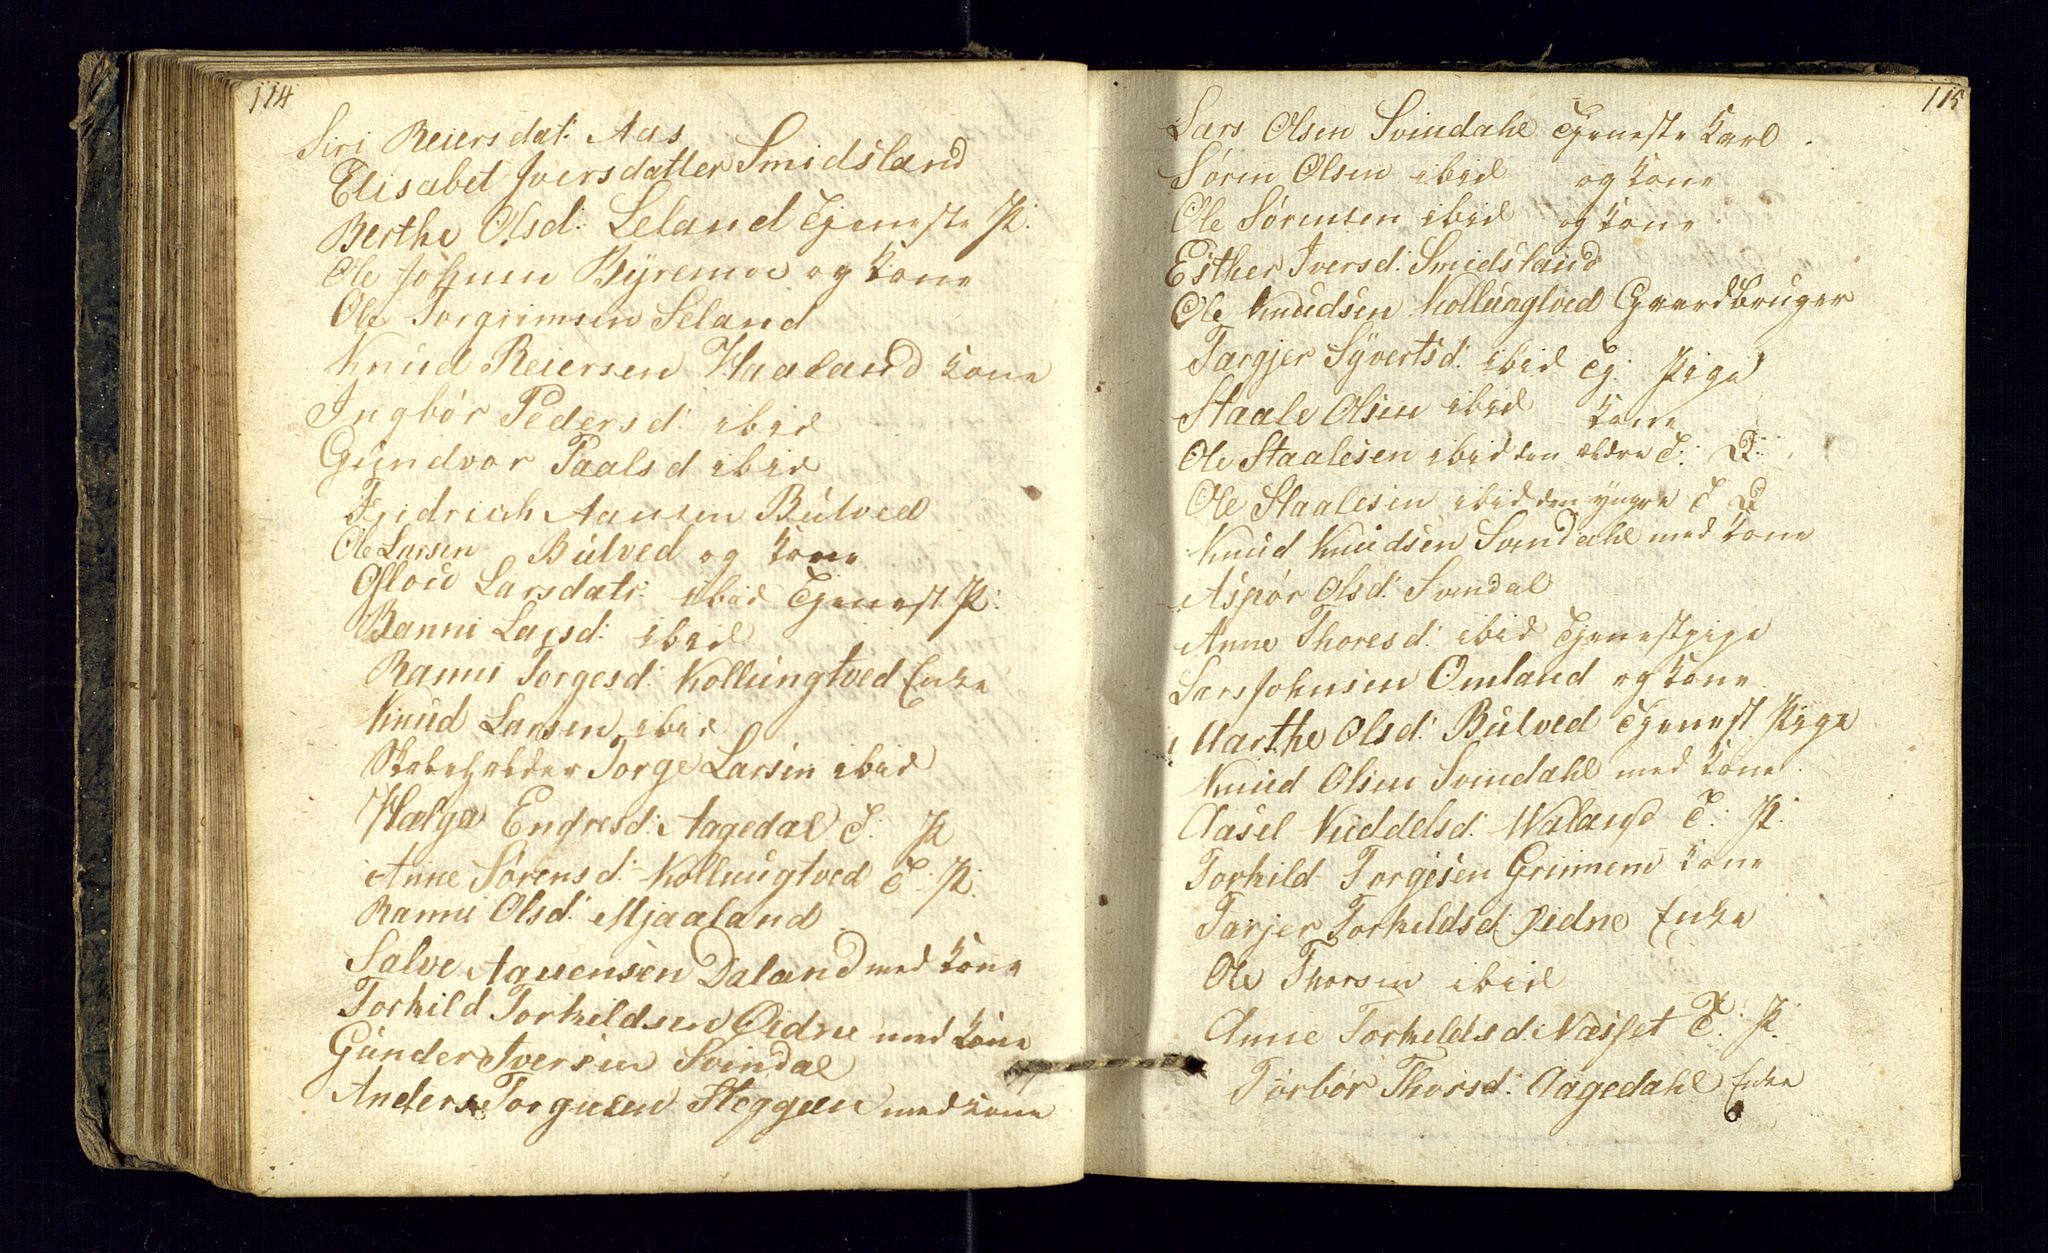 114
Siri Reiersdat: Aas
Elisabet Iversdatter Smidsland
Berthe Olsd: Leland Tjeneste P:
Ole Johnsen Byremoe og Kone
Ole Torgrimsen Seland
Knud Reiersen Haaland Kone
Ingbør Pedersd: ibid
Gundvor Paalsd ibid
Fridrich Aansen Butved
Ole Larsen Butved og Kone
Larsdatr: ibid Tjenest P:
Ranni Larsd: ibid
Ranni Torgesd: Kollungtved Enke
Knud Larsen ibid
Torge Larsen ibid
Helga Endresd: Aagedal T: P
Anne Sørensd: Kollungtved T: P:
Ranni Olsd: Mjaaland
Salve Aanensen Daland med Kone
Torkild Torkildsen Øidne med Kone
Gunder Iversen Svindal
Anders Torgiusen Heggen med Kone
115
Lars Olsen Svindahl Tjeneste Karl
Søren Olsen ibid og Kone
Ole Sørensen ibid og Kone
Esther Iversd: Smidsland
Ole Knudsen Kollungtved Gaardbruger
Targjer Syvertsd: ibid Tj: Pige
Staale Olsen ibid Kone
Ole Staalesen ibid den ældre T: D:
Ole Staalesen ibid den yngre T D
Knud Knudsen Svindahl med Kone
Aspør Olsd: Svindal
Anne Thoresd: ibid Tjenestpige
Lars Johnsen Omland og Kone
Marthe Olsd: Butved Tjenest Pige
Knud Olsen Svindahl med Kone
Aasel Kiddelsd: Waland T: P:
Torkild Torgesen Grimem Kone
Tarjer Torkildsd Øidne Enke
Ole Thorsen ibid
Anne Torkeldsd: Næsset T: P:
Torbør Thorsd: Aagedahl Enke